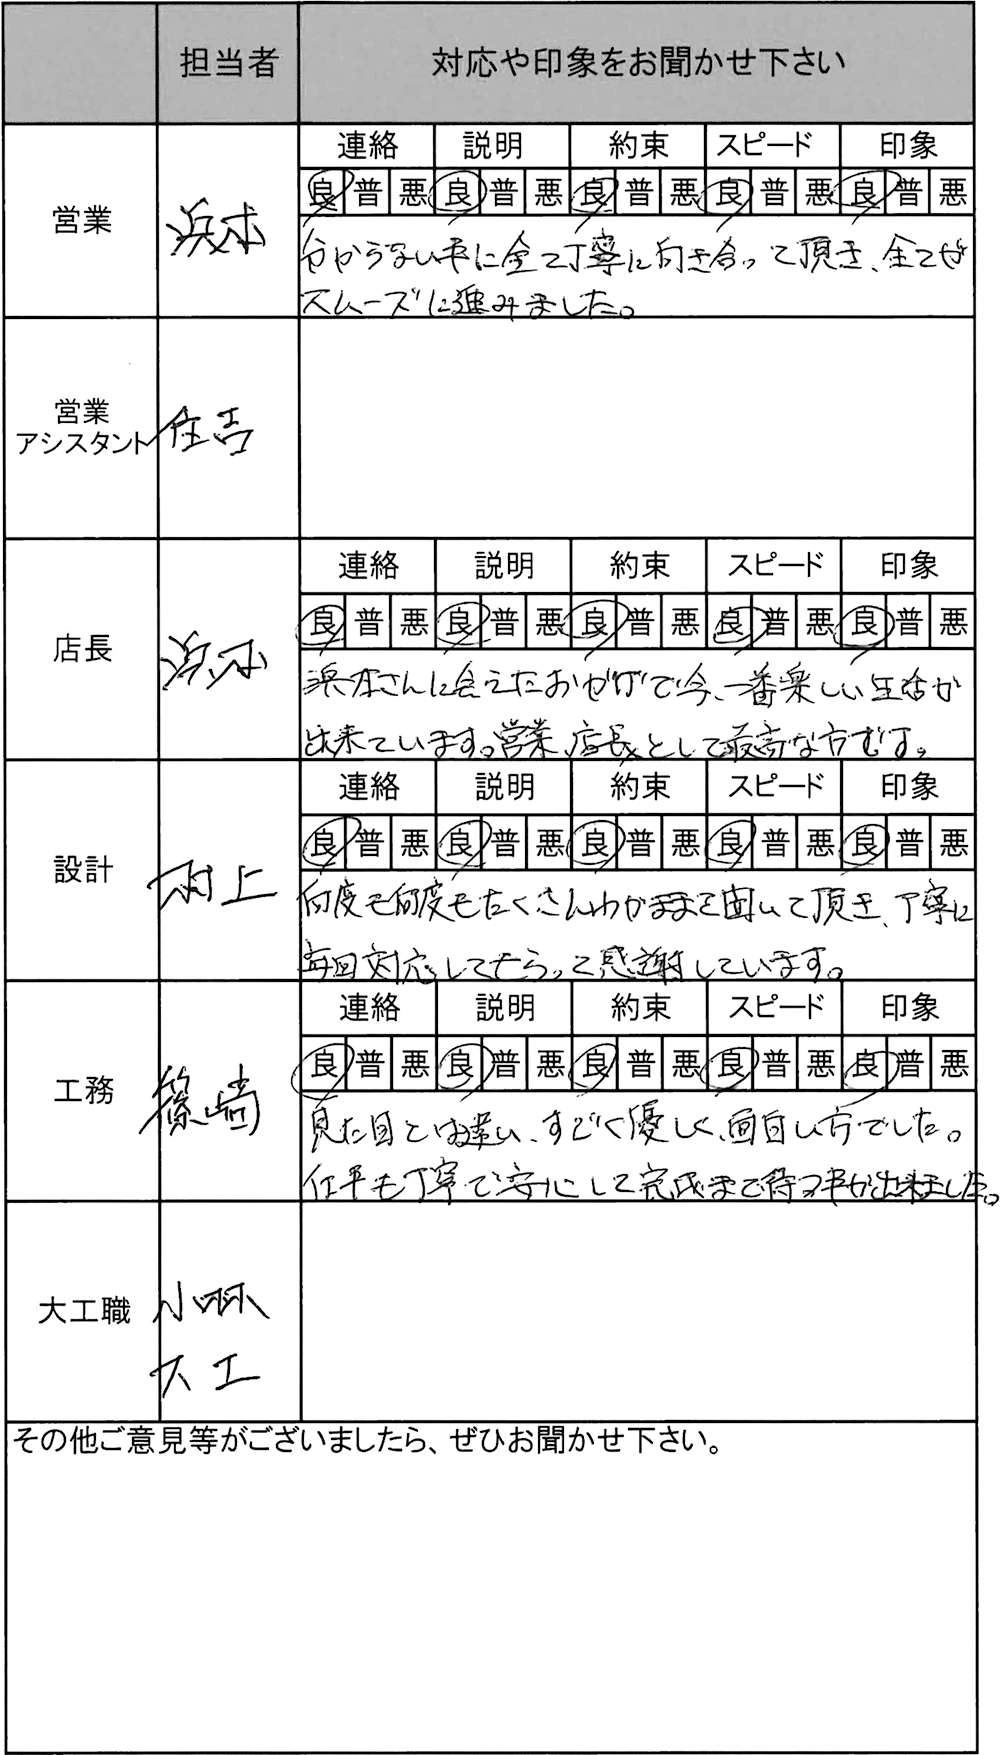 担当者 対応や印象をお聞かせ下さい
営業 浜本
連絡 説明 約束 スピード 印象
良 普 悪 良 普 悪 良 普 悪 良 普 悪 良 普 悪
分からない事に全て丁寧に向き合って頂き、全てが
スムーズに進みました。
営業
アシスタント 住吉
店長 浜本
連絡 説明 約束 スピード 印象
良 普 悪 良 普 悪 良 普 悪 良 普 悪 良 普 悪
浜本さんに会えたおかげで今、一番楽しい生活が
出来ています。営業、店長として最高な方です。
設計 村上
連絡 説明 約束 スピード 印象
良 普 悪 良 普 悪 良 普 悪 良 普 悪 良 普 悪
何度も何度もたくさんわがままを聞いて頂き、丁寧に
毎回対応してもらって感謝しています。
工務 篠崎
連絡 説明 約束 スピード 印象
良 普 悪 良 普 悪 良 普 悪 良 普 悪 良 普 悪
見た目とは違い、すごく優しく、面白い方でした。
仕事も丁寧で安心して完成まで待つ事が出来ました。
大工職 小林
大工
その他ご意見等がございましたら、ぜひお聞かせ下さい。